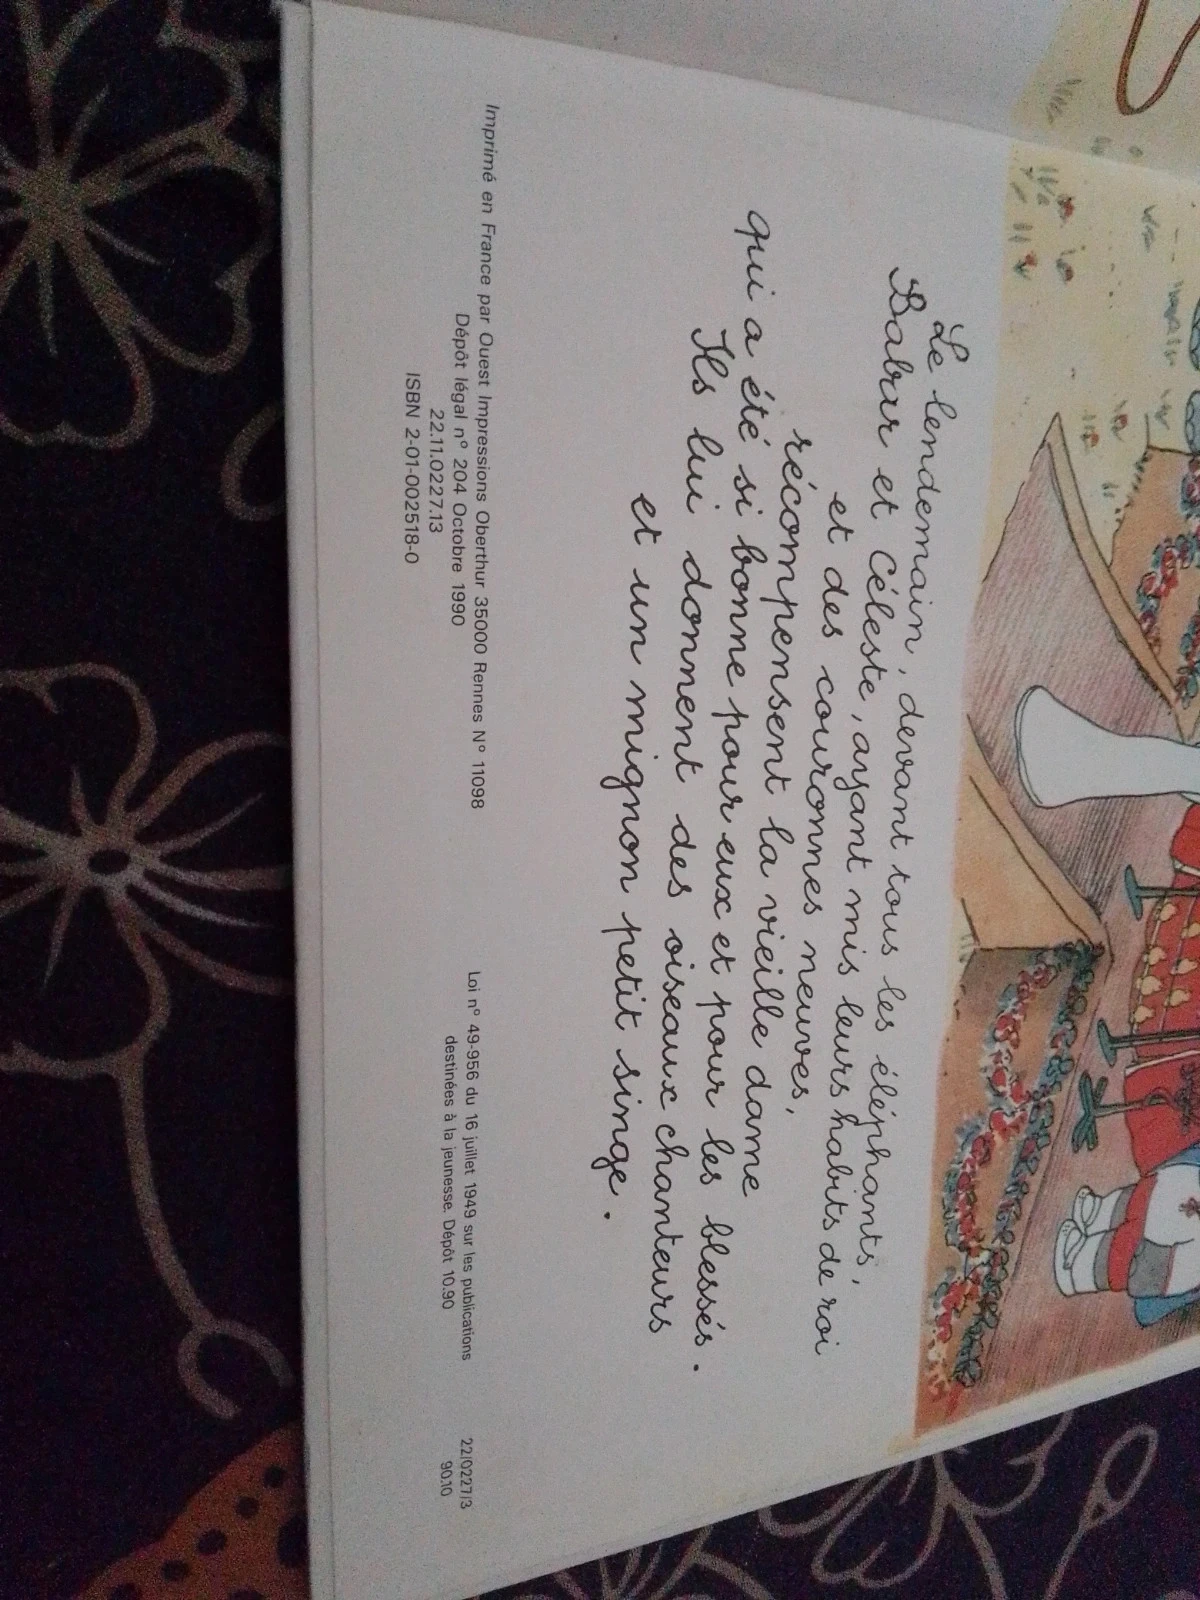 Le lendemain, devant tous les éléphants,
Babar et Céleste, ayant mis leurs habits de roi
et des couronnes neuves,
récompensent la vieille dame
qui a été si bonne pour eux et pour les blessés.
Ils lui donnent des oiseaux chanteurs
et un mignon petit singe.
Imprimé en France par Ouest Impressions Oberthur 35000 Rennes N° 11098
Dépôt légal n° 204 Octobre 1990
22.11.0227.13
ISBN 2-01-002518-0
Loi n° 49-956 du 16 juillet 1949 sur les publications
destinées à la jeunesse. Dépôt 10.90
22/0227/3
90.10